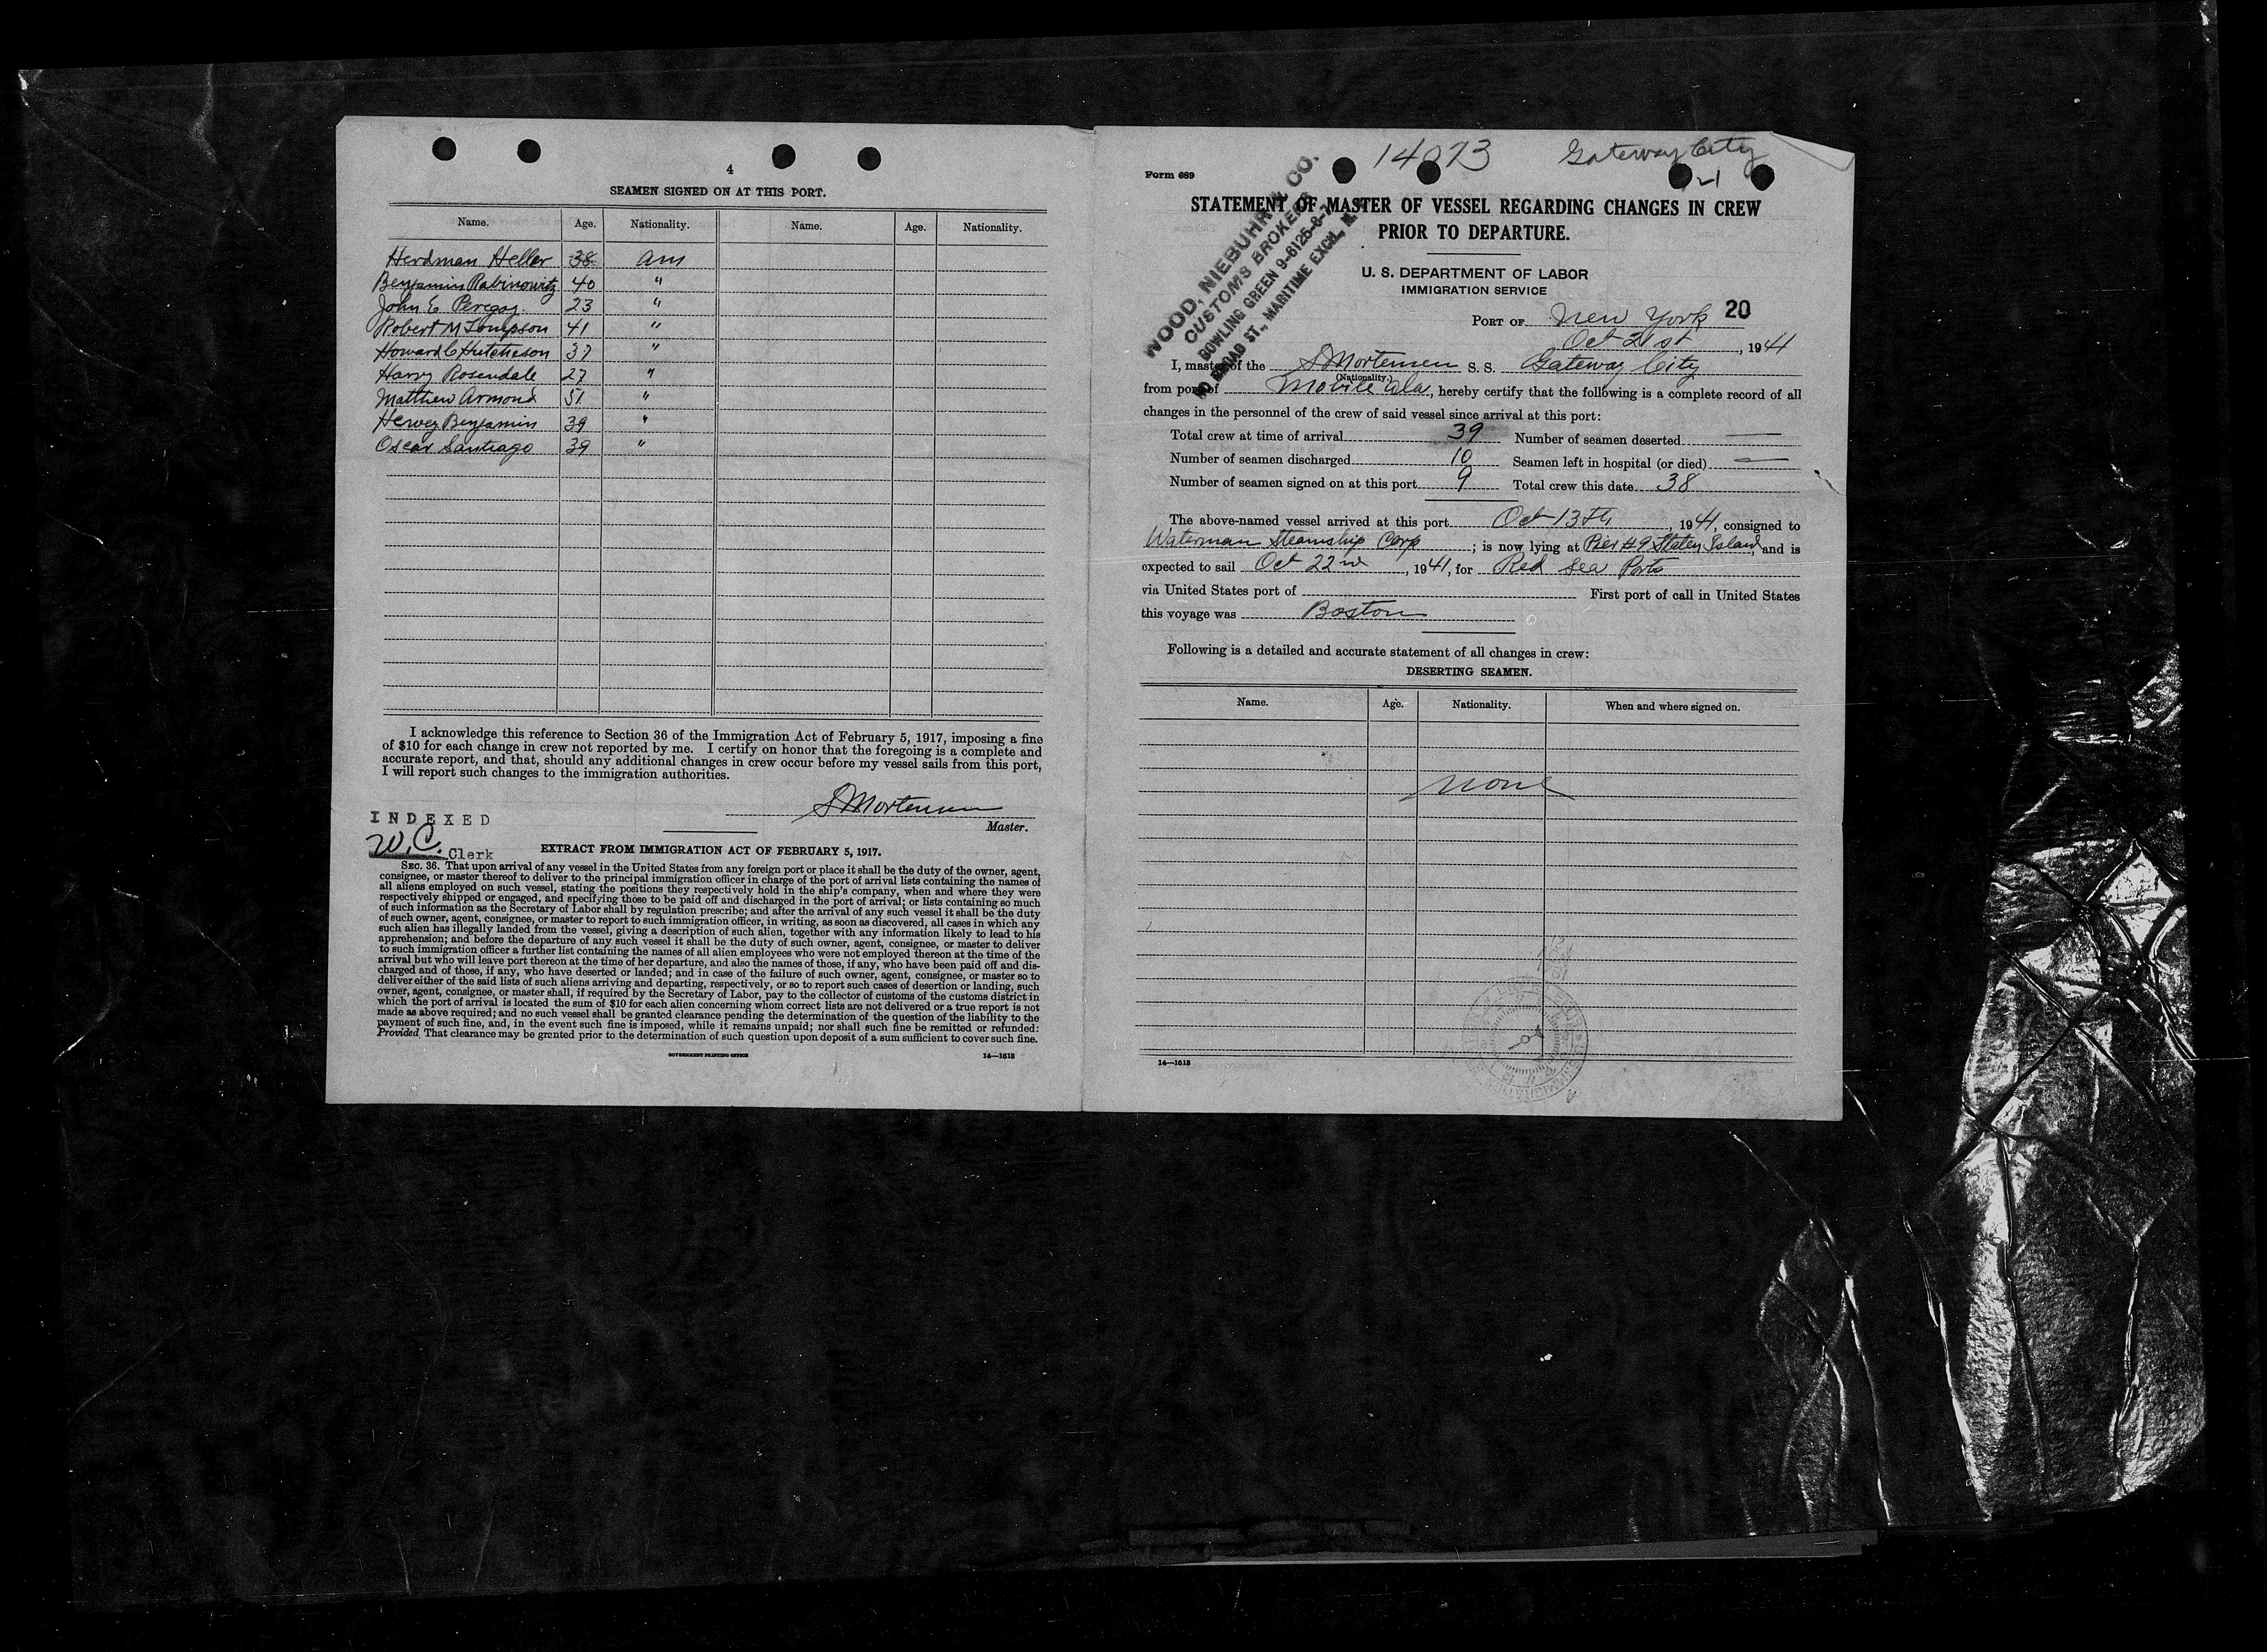 4
SEAMEN SIGNED ON AT THIS PORT.
Name. Age. Nationality. Name. Age. Nationality.
Herdman Heller 38 Am
Benjamin Rabinowitz 40 "
John E Peregoy. 23 "
Robert M Tompson 41 "
Howard C Hutcheson 37 "
Harry Rosendale 27 "
Matthew Armond 51 "
Hervey Benjamin 39 "
Oscar Santiago 39 "
I acknowledge this reference to Section 36 of the Immigration Act of February 5, 1917, imposing a fine
of $10 for each change in crew not reported by me. I certify on honor that the foregoing is a complete and
accurate report, and that, should any additional changes in crew occur before my vessel sails from this port,
I will report such changes to the immigration authorities.
S Mortensen
Master.
INDEXED
W.C. Clerk
EXTRACT FROM IMMIGRATION ACT OF FEBRUARY 5, 1917.
SEC. 36. That upon arrival of any vessel in the United States from any foreign port or place it shall be the duty of the owner, agent,
consignee, or master thereof to deliver to the principal immigration officer in charge of the port of arrival lists containing the names of
all aliens employed on such vessel, stating the positions they respectively hold in the ship's company, when and where they were
respectively shipped or engaged, and specifying those to be paid off and discharged in the port of arrival; or lists containing so much
of such information as the Secretary of Labor shall by regulation prescribe; and after the arrival of any such vessel it shall be the duty
of such owner, agent, consignee, or master to report to such immigration officer, in writing, as soon as discovered, all cases in which any
such alien has illegally landed from the vessel, giving a description of such alien, together with any information likely to lead to his
apprehension; and before the departure of any such vessel it shall be the duty of such owner, agent, consignee, or master to deliver
to such immigration officer a further list containing the names of all alien employees who were not employed thereon at the time of the
arrival but who will leave port thereon at the time of her departure, and also the names of those, if any, who have been paid off and dis-
charged and of those, if any, who have deserted or landed; and in case of the failure of such owner, agent, consignee, or master so to
deliver either of the said lists of such aliens arriving and departing, respectively, or so to report such cases of desertion or landing, such
owner, agent, consignee, or master shall, if required by the Secretary of Labor, pay to the collector of customs of the customs district in
which the port of arrival is located the sum of $10 for each alien concerning whom correct lists are not delivered or a true report is not
made as above required; and no such vessel shall be granted clearance pending the determination of the question of the liability to the
payment of such fine, and, in the event such fine is imposed, while it remains unpaid; nor shall such fine be remitted or refunded:
Provided, That clearance may be granted prior to the determination of such question upon deposit of a sum sufficient to cover such fine.
GOVERNMENT PRINTING OFFICE 14—1613
14073 Gateway City
Form 689
WOOD, NIEBUHR & CO.
CUSTOMS BROKERS
BOWLING GREEN 9-6125-6-7
BROAD ST., MARITIME EXCH., N.
STATEMENT OF MASTER OF VESSEL REGARDING CHANGES IN CREW
PRIOR TO DEPARTURE.
U. S. DEPARTMENT OF LABOR
IMMIGRATION SERVICE
PORT OF New York 20
Oct 21st, 1941
I, master of the S Mortensen S. S. Gateway City
(Nationality)
from port of Mobile Ala, hereby certify that the following is a complete record of all
changes in the personnel of the crew of said vessel since arrival at this port:
Total crew at time of arrival 39 Number of seamen deserted —
Number of seamen discharged 10 Seamen left in hospital (or died) —
Number of seamen signed on at this port 9 Total crew this date 38
The above-named vessel arrived at this port Oct 13th, 1941, consigned to
Waterman Steamship Corp; is now lying at Pier #9 Staten Island and is
expected to sail Oct 22nd, 1941, for Red Sea Ports
via United States port of First port of call in United States
this voyage was Boston
Following is a detailed and accurate statement of all changes in crew:
DESERTING SEAMEN.
Name. Age. Nationality. When and where signed on.
None
14—1613